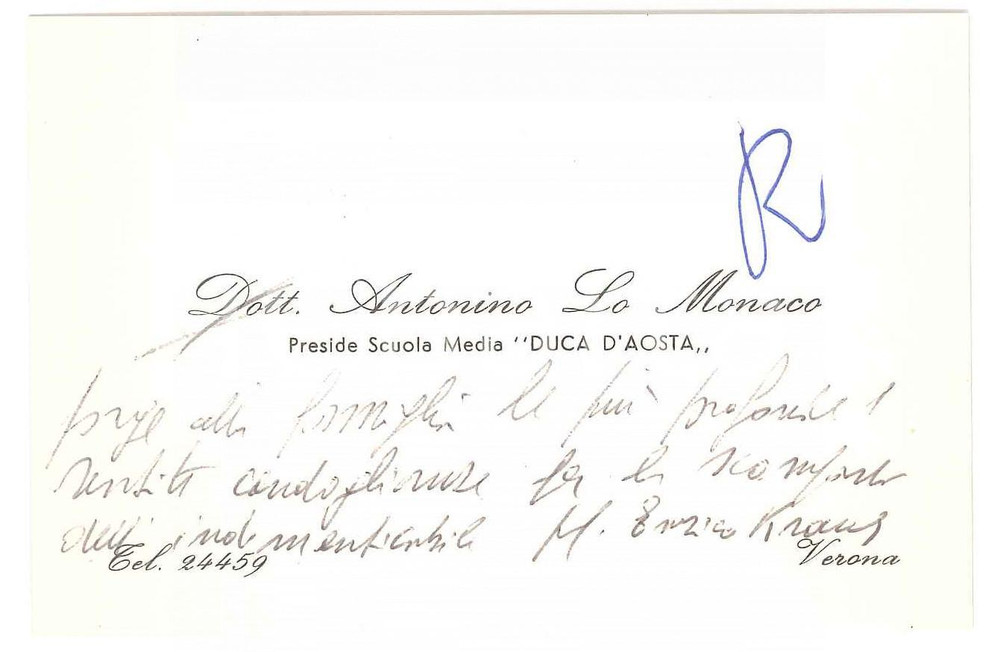 R
Dott. Antonino Lo Monaco
Preside Scuola Media ‘‘DUCA D'AOSTA,,
porge alla famiglia le più profonde e
sentite condoglianze per la scomparsa
dell'indimenticabile M. Enrico Kraus
Tel. 24459
Verona